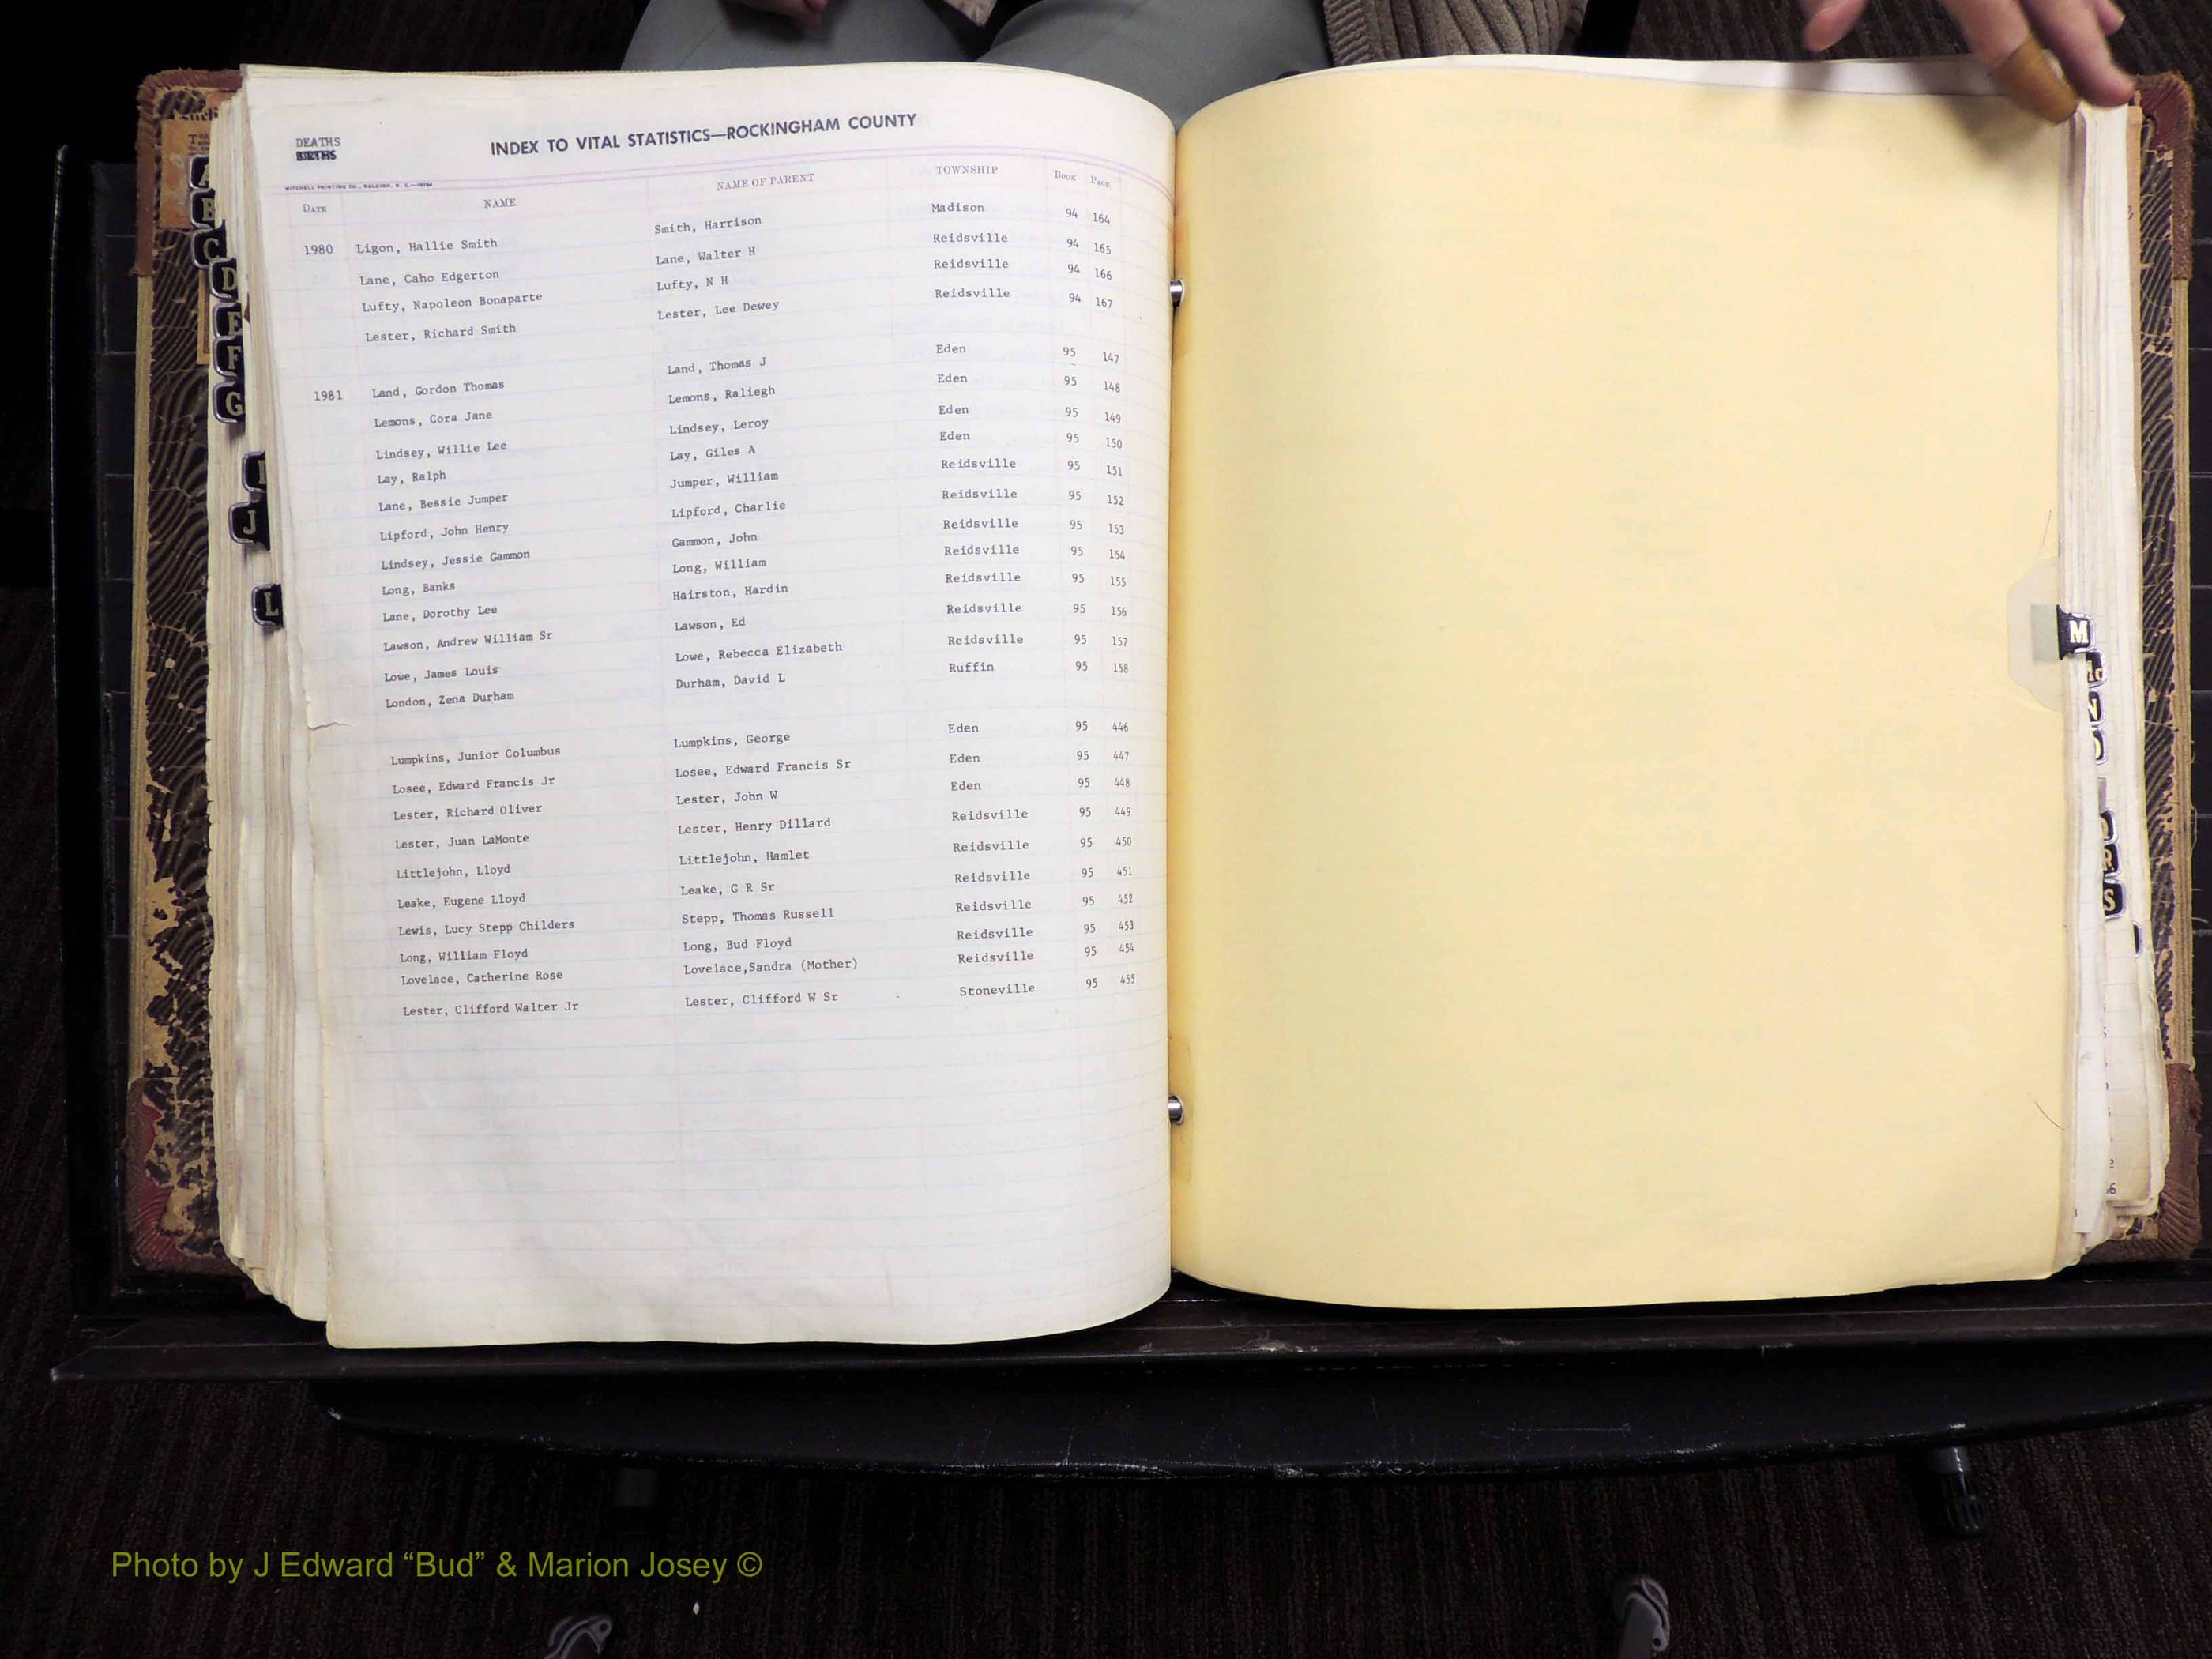 DEATHS
BIRTHS
INDEX TO VITAL STATISTICS—ROCKINGHAM COUNTY
MITCHELL PRINTING CO., RALEIGH, N. C.
DATE NAME NAME OF PARENT TOWNSHIP BOOK PAGE
1980 Ligon, Hallie Smith Smith, Harrison Madison 94 164
Lane, Caho Edgerton Lane, Walter H Reidsville 94 165
Lufty, Napoleon Bonaparte Lufty, N H Reidsville 94 166
Lester, Richard Smith Lester, Lee Dewey Reidsville 94 167
1981 Land, Gordon Thomas Land, Thomas J Eden 95 147
Lemons, Cora Jane Lemons, Raliegh Eden 95 148
Lindsey, Willie Lee Lindsey, Leroy Eden 95 149
Lay, Ralph Lay, Giles A Eden 95 150
Lane, Bessie Jumper Jumper, William Reidsville 95 151
Lipford, John Henry Lipford, Charlie Reidsville 95 152
Lindsey, Jessie Gammon Gammon, John Reidsville 95 153
Long, Banks Long, William Reidsville 95 154
Lane, Dorothy Lee Hairston, Hardin Reidsville 95 155
Lawson, Andrew William Sr Lawson, Ed Reidsville 95 156
Lowe, James Louis Lowe, Rebecca Elizabeth Reidsville 95 157
London, Zena Durham Durham, David L Ruffin 95 158
Lumpkins, Junior Columbus Lumpkins, George Eden 95 446
Losee, Edward Francis Jr Losee, Edward Francis Sr Eden 95 447
Lester, Richard Oliver Lester, John W Eden 95 448
Lester, Juan LaMonte Lester, Henry Dillard Reidsville 95 449
Littlejohn, Lloyd Littlejohn, Hamlet Reidsville 95 450
Leake, Eugene Lloyd Leake, G R Sr Reidsville 95 451
Lewis, Lucy Stepp Childers Stepp, Thomas Russell Reidsville 95 452
Long, William Floyd Long, Bud Floyd Reidsville 95 453
Lovelace, Catherine Rose Lovelace,Sandra (Mother) Reidsville 95 454
Lester, Clifford Walter Jr Lester, Clifford W Sr Stoneville 95 455
A
B
C
D
E
F
G
J
L
M
N
R
S
Photo by J Edward “Bud” & Marion Josey ©